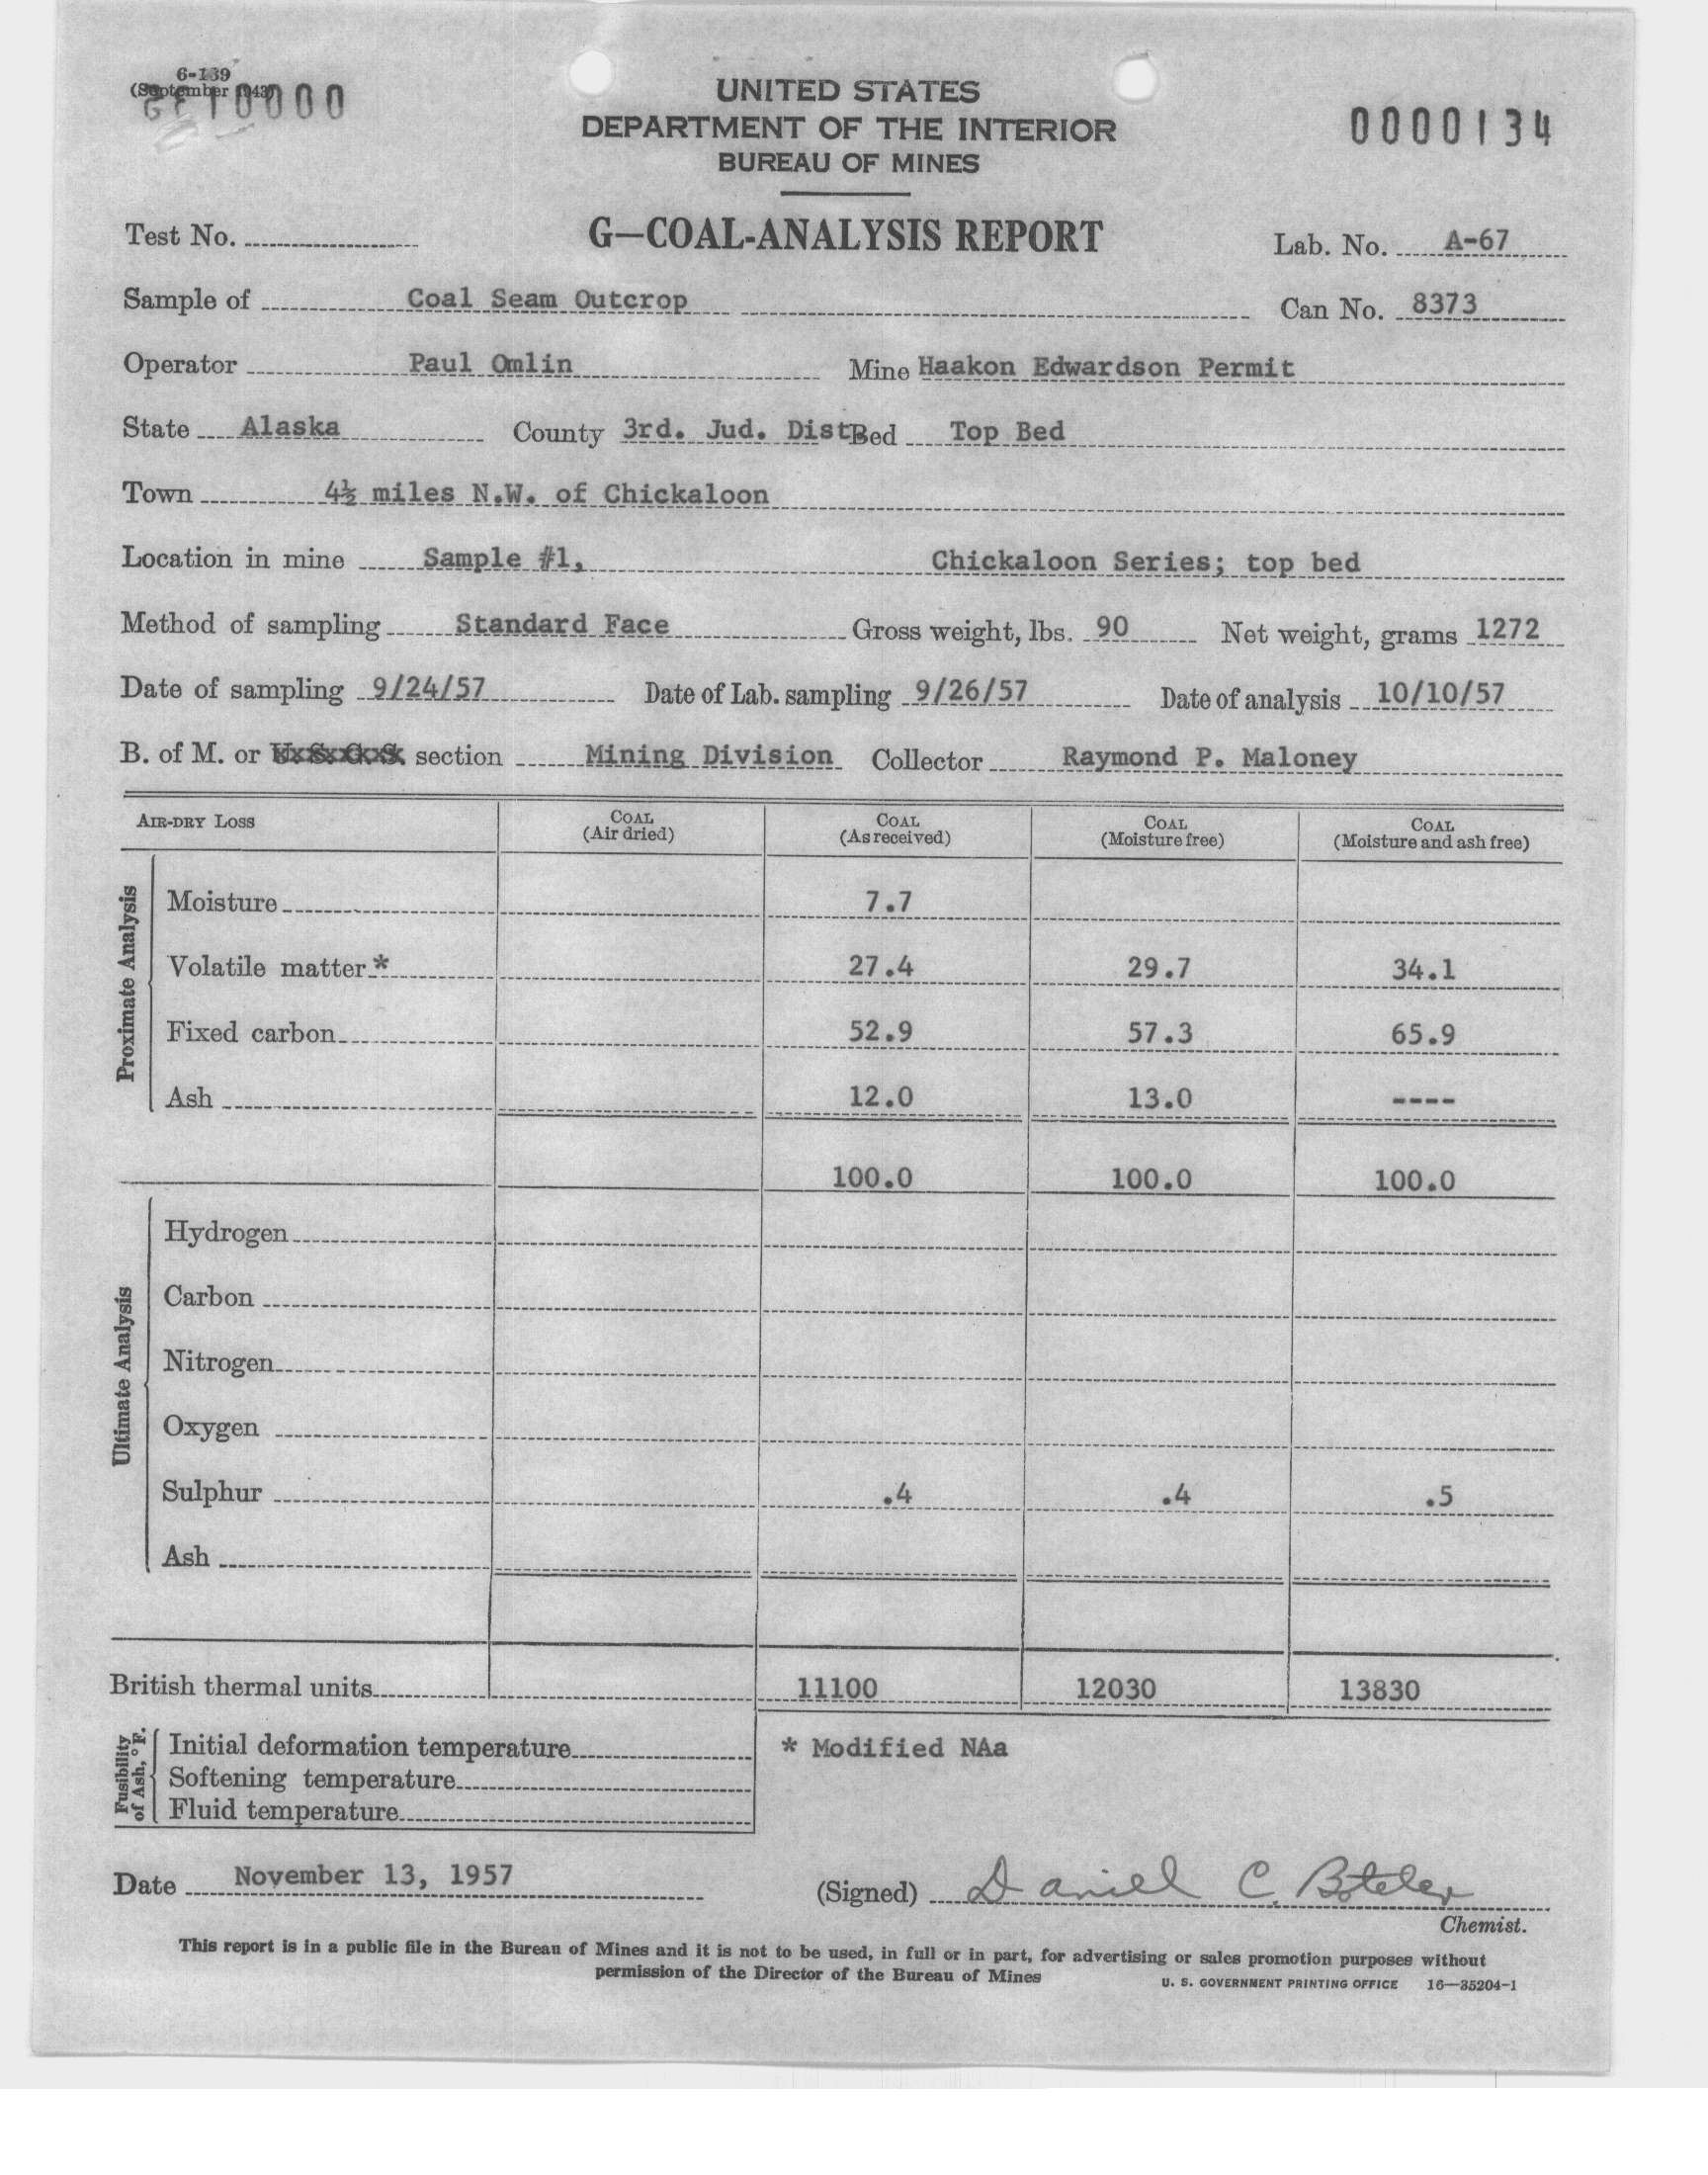 6-139
(September 1943)
0000134
UNITED STATES
DEPARTMENT OF THE INTERIOR
BUREAU OF MINES
G—COAL-ANALYSIS REPORT
Test No.
Lab. No. A-67
Sample of Coal Seam Outcrop Can No. 8373
Operator Paul Omlin Mine Haakon Edwardson Permit
State Alaska County 3rd. Jud. Dist Bed Top Bed
Town 4½ miles N.W. of Chickaloon
Location in mine Sample #1, Chickaloon Series; top bed
Method of sampling Standard Face Gross weight, lbs. 90 Net weight, grams 1272
Date of sampling 9/24/57 Date of Lab. sampling 9/26/57 Date of analysis 10/10/57
B. of M. or U. S. G. S. section Mining Division Collector Raymond P. Maloney
AIR-DRY LOSS COAL (Air dried) COAL (As received) COAL (Moisture free) COAL (Moisture and ash free)
Proximate Analysis
Moisture 7.7
Volatile matter * 27.4 29.7 34.1
Fixed carbon 52.9 57.3 65.9
Ash 12.0 13.0 ----
100.0 100.0 100.0
Ultimate Analysis
Hydrogen
Carbon
Nitrogen
Oxygen
Sulphur .4 .4 .5
Ash
British thermal units 11100 12030 13830
Fusibility of Ash, °F.
Initial deformation temperature * Modified NAa
Softening temperature
Fluid temperature
Date November 13, 1957 (Signed) Daniel C. Boteler
Chemist.
This report is in a public file in the Bureau of Mines and it is not to be used, in full or in part, for advertising or sales promotion purposes without
permission of the Director of the Bureau of Mines U. S. GOVERNMENT PRINTING OFFICE 16—35204-1